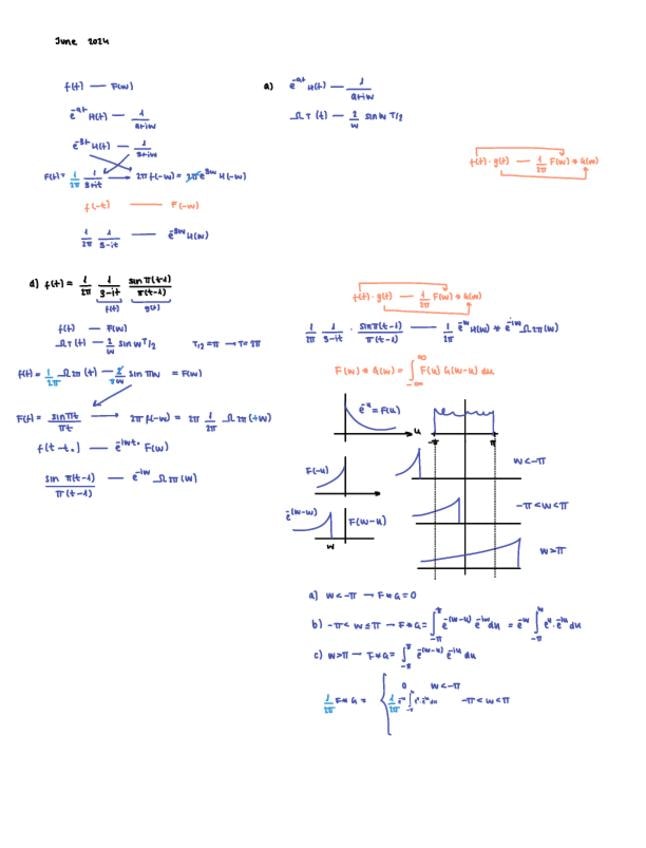 June 2024
f(t) — F(w)
e^-at H(t) — 1/(a+iw)
e^-3t H(t) — 1/(3+iw)
F(t) = 1/2π 1/(3+it) → 2π f(-w) = 2π e^3w H(-w)
f(-t) — F(-w)
1/2π 1/(3-it) — e^-3w H(w)
a) e^-at H(t) — 1/(a+iw)
Ω_T (t) — 2/w sin w T/2
f(t) · g(t) — 1/2π F(w) * G(w)
d) f(t) = 1/2π 1/(3-it) sin π(t-1)/π(t-1)
f(t) g(t)
f(t) — F(w)
Ω_T (t) — 2/w sin w T/2 T/2 = π → T = 2π
f(t) = 1/2π Ω_2π (t) — 2/2πw sin πw = F(w)
F(t) = sin πt/πt → 2π f(-w) = 2π 1/2π Ω_2π (+w)
f(t-t.) — e^-iwt. F(w)
sin π(t-1)/π(t-1) — e^-iw Ω_2π (w)
f(t) · g(t) — 1/2π F(w) * G(w)
1/2π 1/(3-it) · sin π(t-1)/π(t-1) — 1/2π e^-w H(w) * e^-iw Ω_2π (w)
F(w) * G(w) = ∫_-∞^∞ F(u) G(w-u) du
e^-u = F(u)
u -π π
F(-u) w < -π
e^-(w-u) F(w-u) -π < w < π
w
w > π
a) w < -π → F * G = 0
b) -π < w ≤ π → F * G = ∫_-π^π e^-(w-u) e^-iu du = e^-w ∫_-π^w e^u · e^-iu du
c) w > π → F * G = ∫_-π^π e^-(w-u) e^-iu du
1/2π F * G = { 0 w < -π
1/2π e^-w ∫_-π^w e^u · e^-iu du -π < w < π